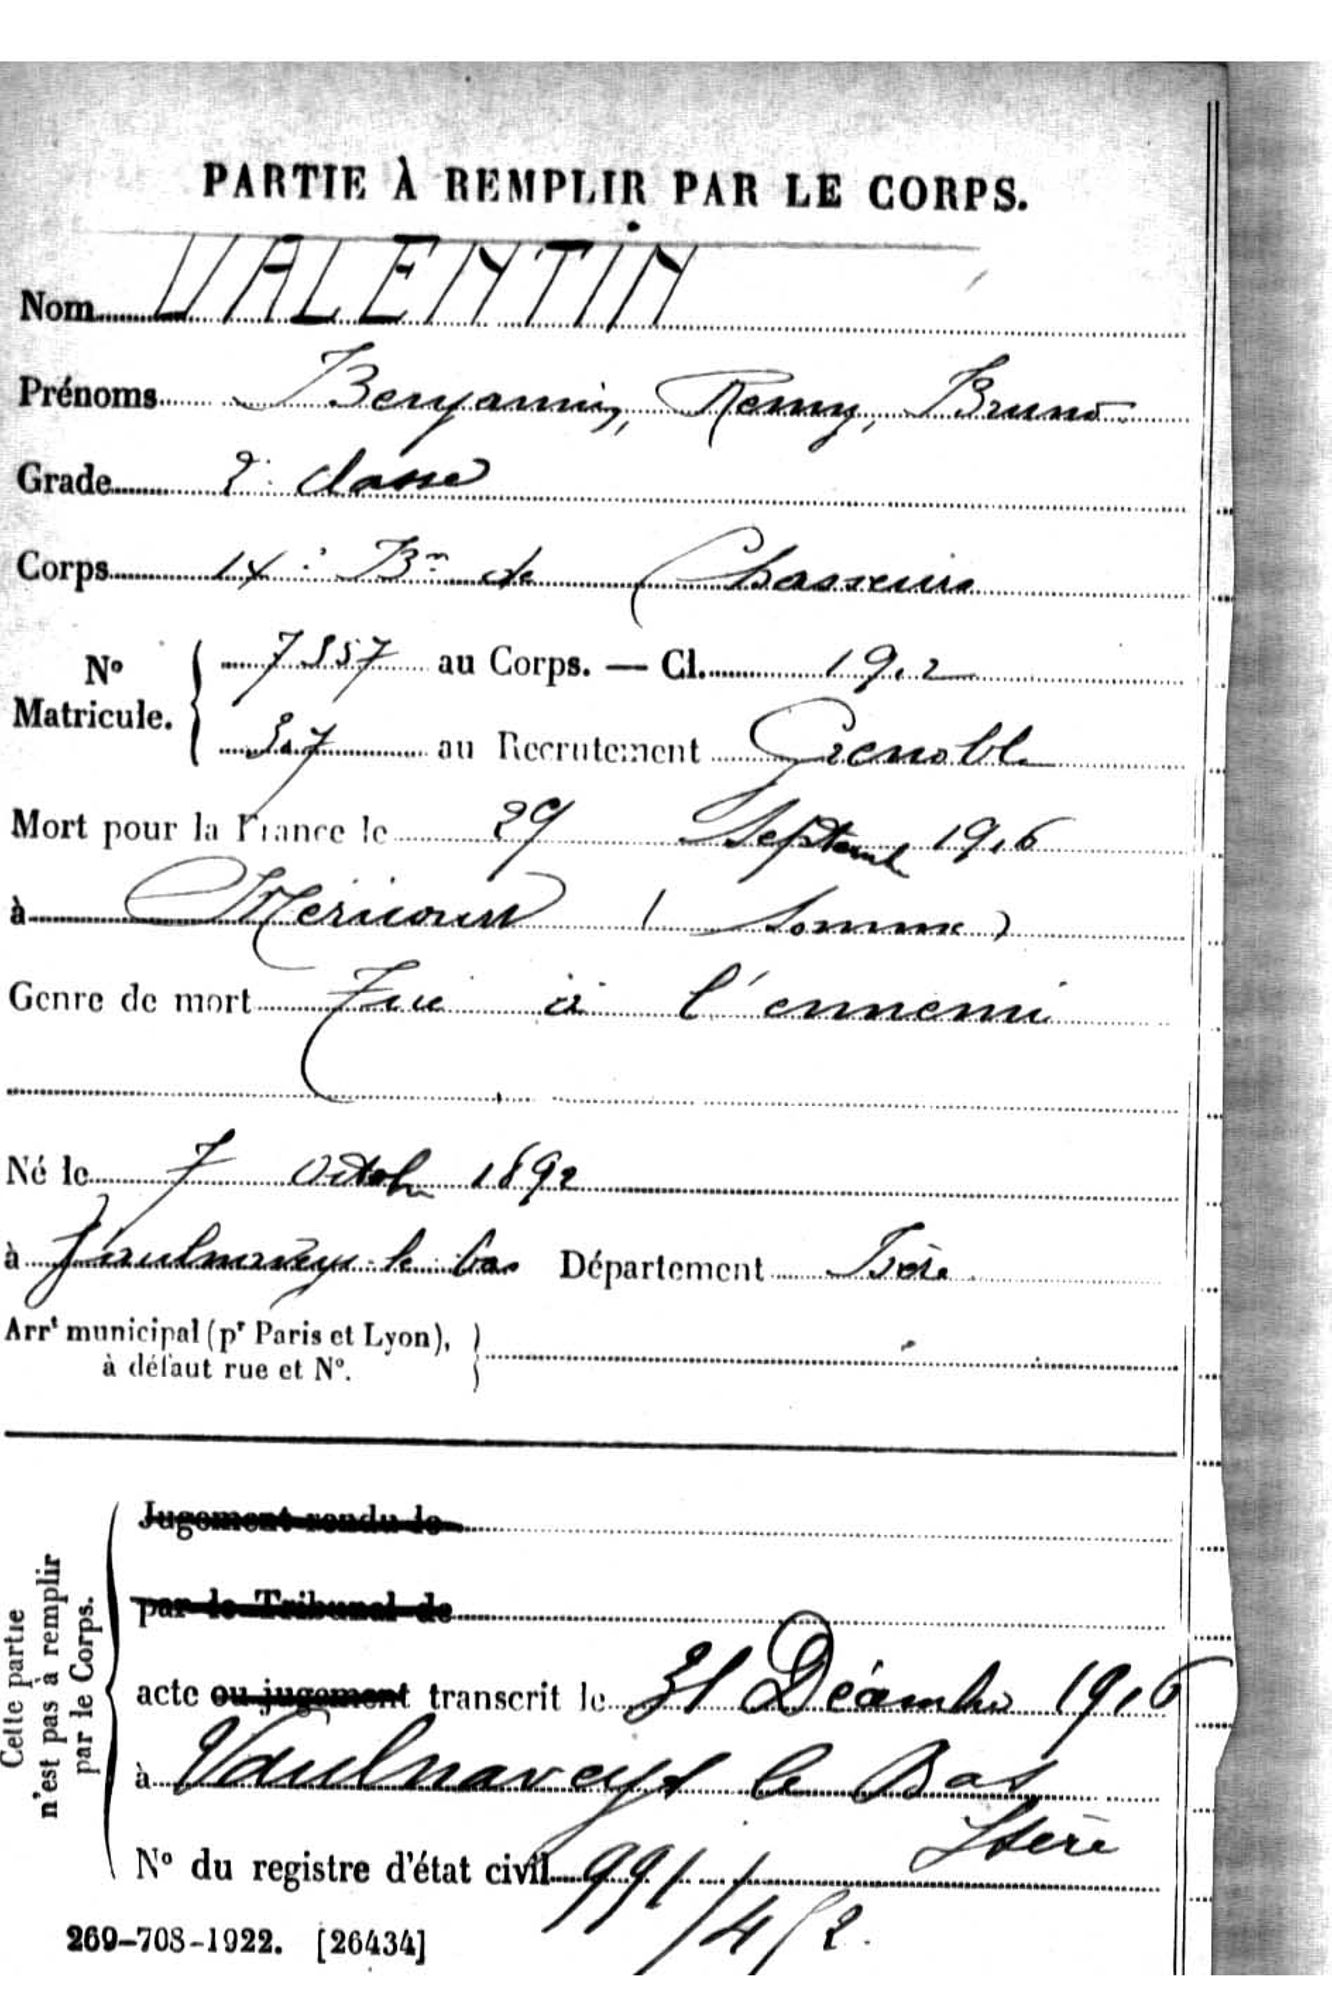 PARTIE À REMPLIR PAR LE CORPS.
Nom VALENTIN
Prénoms Benjamin, Remy, Bruno
Grade 2e classe
Corps 14e Bon de Chasseurs
No Matricule. { 7357 au Corps. — Cl. 1912
307 au Recrutement Grenoble
Mort pour la France le 29 Septembre 1916
à Méricourt (Somme)
Genre de mort Tué à l'ennemi
Né le 7 Octobre 1892
à Vaulnaveys-le-bas Département Isère
Arrt municipal (pr Paris et Lyon), }
à défaut rue et No.
Cette partie
n'est pas à remplir
par le Corps.
Jugement rendu le
par le Tribunal de
acte ou jugement transcrit le 31 Décembre 1916
à Vaulnaveys le Bas
Isère
No du registre d'état civil 991/452.
269-708-1922. [26434]